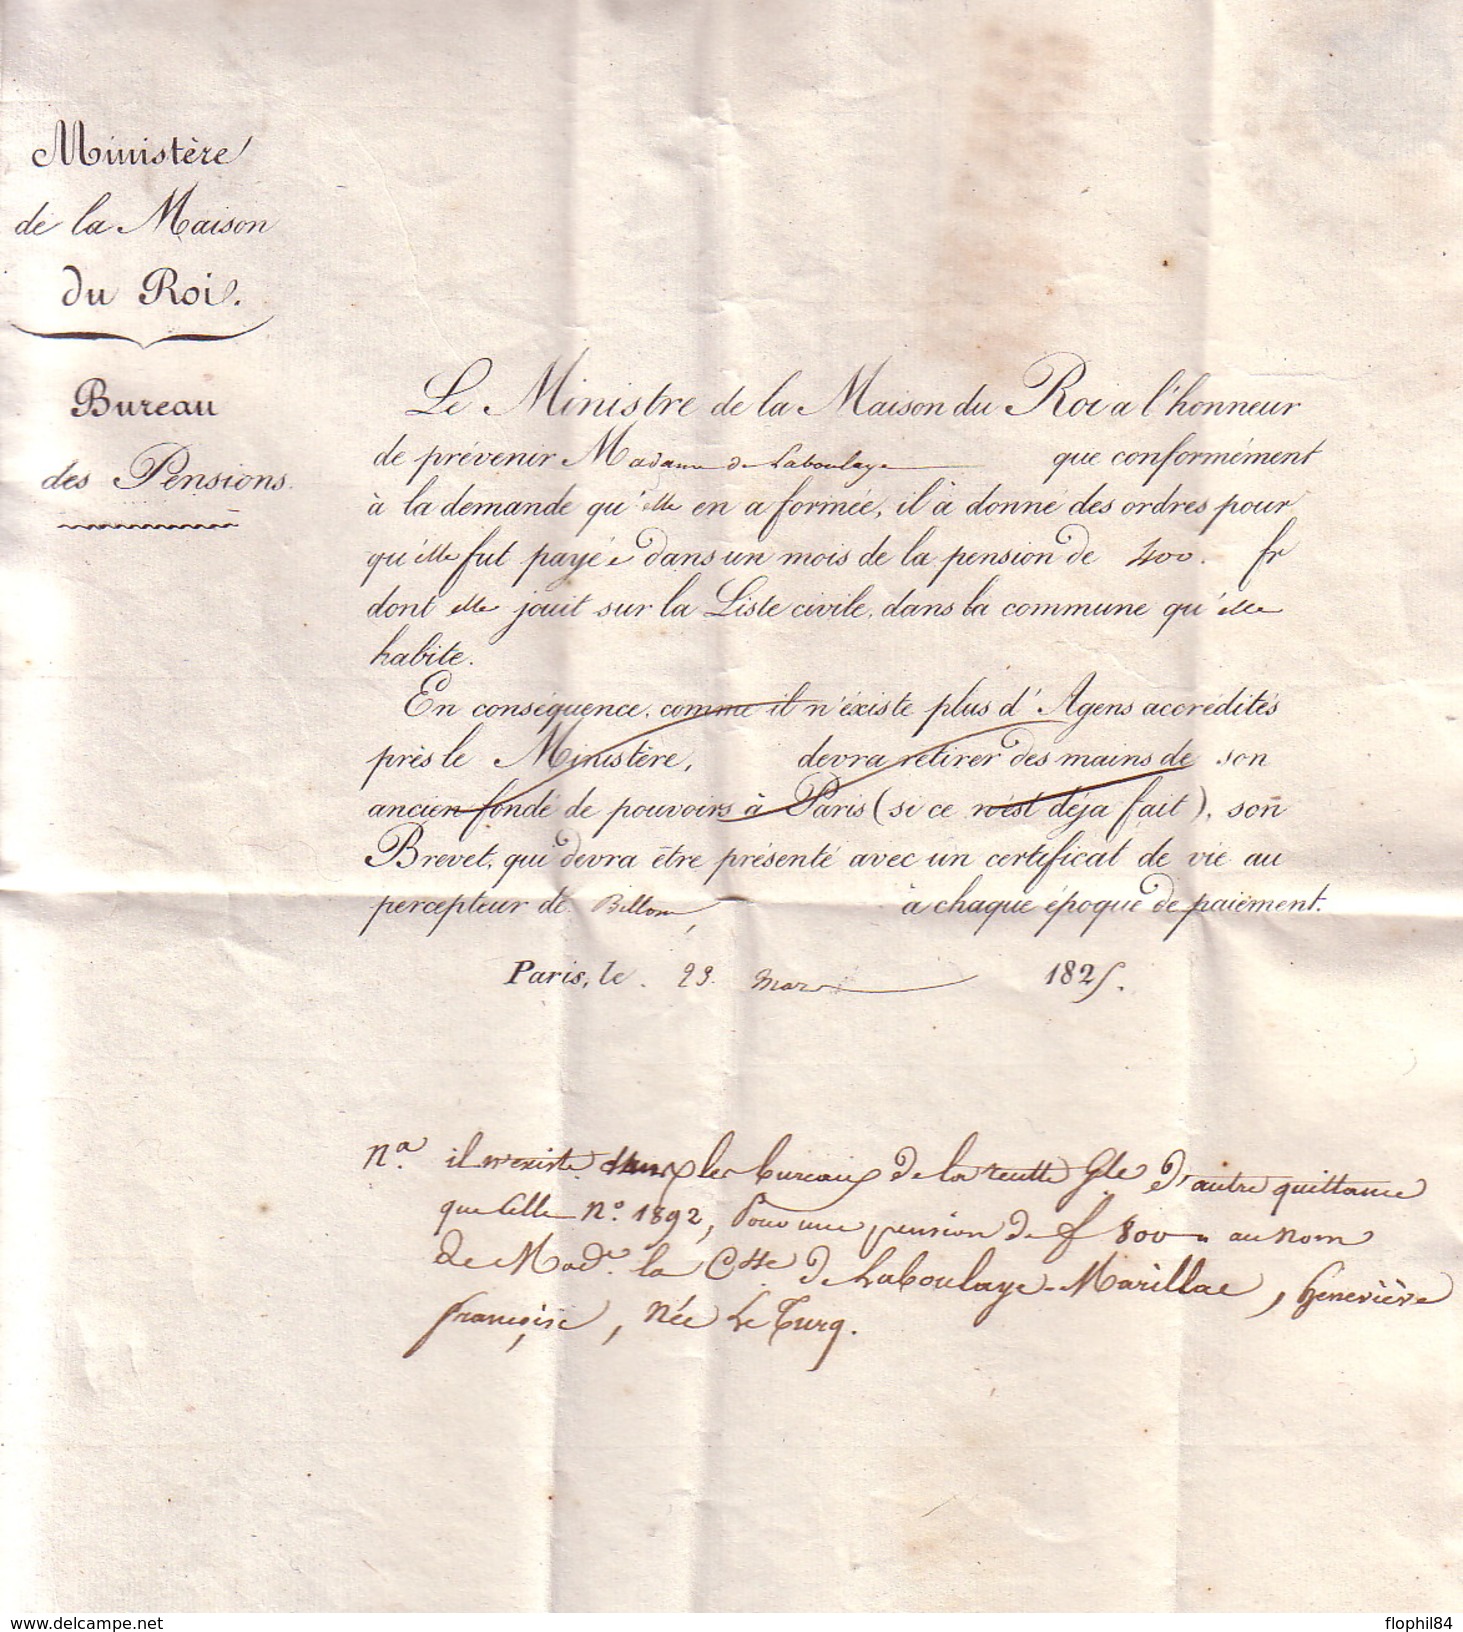 Ministère
de la Maison
du Roi.
Bureau
des Pensions.
Le Ministre de la Maison du Roi a l'honneur
de prévenir Madame de Laboulaye que conformément
à la demande qu'elle en a formée, il à donné des ordres pour
qu'elle fut payée dans un mois de la pension de 400. fr
dont elle jouit sur la Liste civile, dans la commune qu'elle
habite.
En conséquence, comme il n'éxiste plus d'Agens accrédités
près le Ministère, devra retirer des mains de son
ancien fondé de pouvoirs à Paris (si ce n'est déja fait), son
Brevet, qui devra être présenté avec un certificat de vie au
percepteur de Billom, à chaque époque de paiement.
Paris, le 29. Mars 1825.
Na. il n'existe dans les bureaux de la recette Gle d'autre quittance
que celle No. 1892, pour une pension de f 800 au nom
de Made. la Ctsse de Laboulaye-Marillac, Geneviève
françoise, née Le Turq.
www.delcampe.net
flophil84